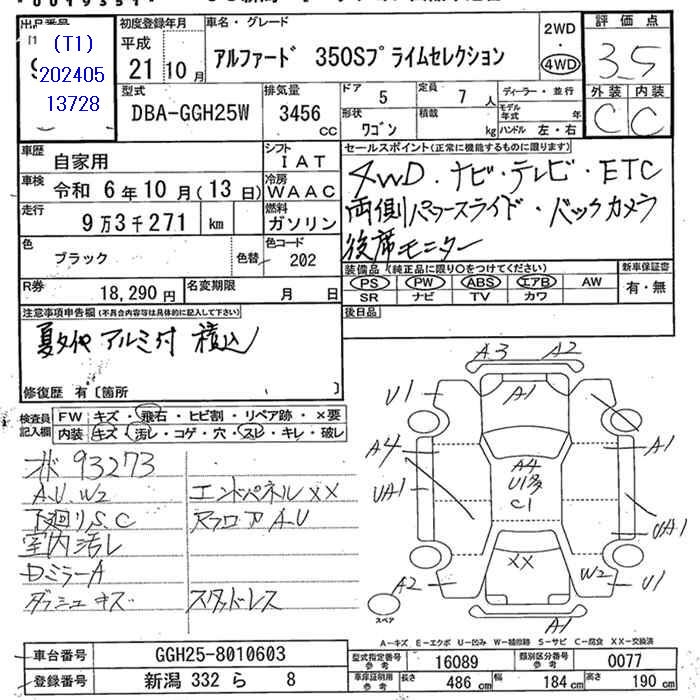 出品番号
(T1)
202405
13728
初度登録年月
平成
21年10月
車名・グレード
アルファード 350Sプライムセレクション
2WD
・
4WD
評価点
3.5
外装 内装
C C
型式
DBA-GGH25W
排気量
3456
cc
ドア 5
定員 7人
形状 ワゴン
積載 kg
ディーラー・並行
モデル年式 年
ハンドル 左・右
車歴 自家用
シフト IAT
車検 令和 6年10月(13日)
冷房 WAAC
走行 9万3千271 km
燃料 ガソリン
色 ブラック 色替
色コード 202
R券 18,290円
名変期限 月 日
セールスポイント(正常に機能するものに限ります)
4WD・ナビ・テレビ・ETC
両側パワースライド・バックカメラ
後席モニター
装備品(純正品に限り○をつけてください)
新車保証書
PS PW ABS エアB AW
有・無
SR ナビ TV カワ
後日品
注意事項申告欄(不具合内容等は具体的に記入して下さい)
夏タイヤ アルミ付 積込
修復歴 有〔箇所 〕
検査員記入欄
FW キズ・飛石・ヒビ割・リペア跡・×要
内装 キズ・汚レ・コゲ・穴・スレ・キレ・破レ
メ 93273
A.U.W2 エンドパネルXX
下廻りS.C Aフロア A.U
室内汚レ
Dミラー A
ダッシュキズ スタッドレス
A3 A2
U1 A1
A4 A1
A4
U1多
C1
UA1 UA1
XX
W2 U1
A2
スペア
A1
A―キズ E―エクボ U―凹み W―補修跡 S―サビ C―腐食 XX―交換済
車台番号 GGH25-8010603
型式指定番号 参考 16089
類別区分番号 参考 0077
登録番号 新潟 332 ら 8
車庫証明用 参考
長さ 486 cm 幅 184 cm 高さ 190 cm